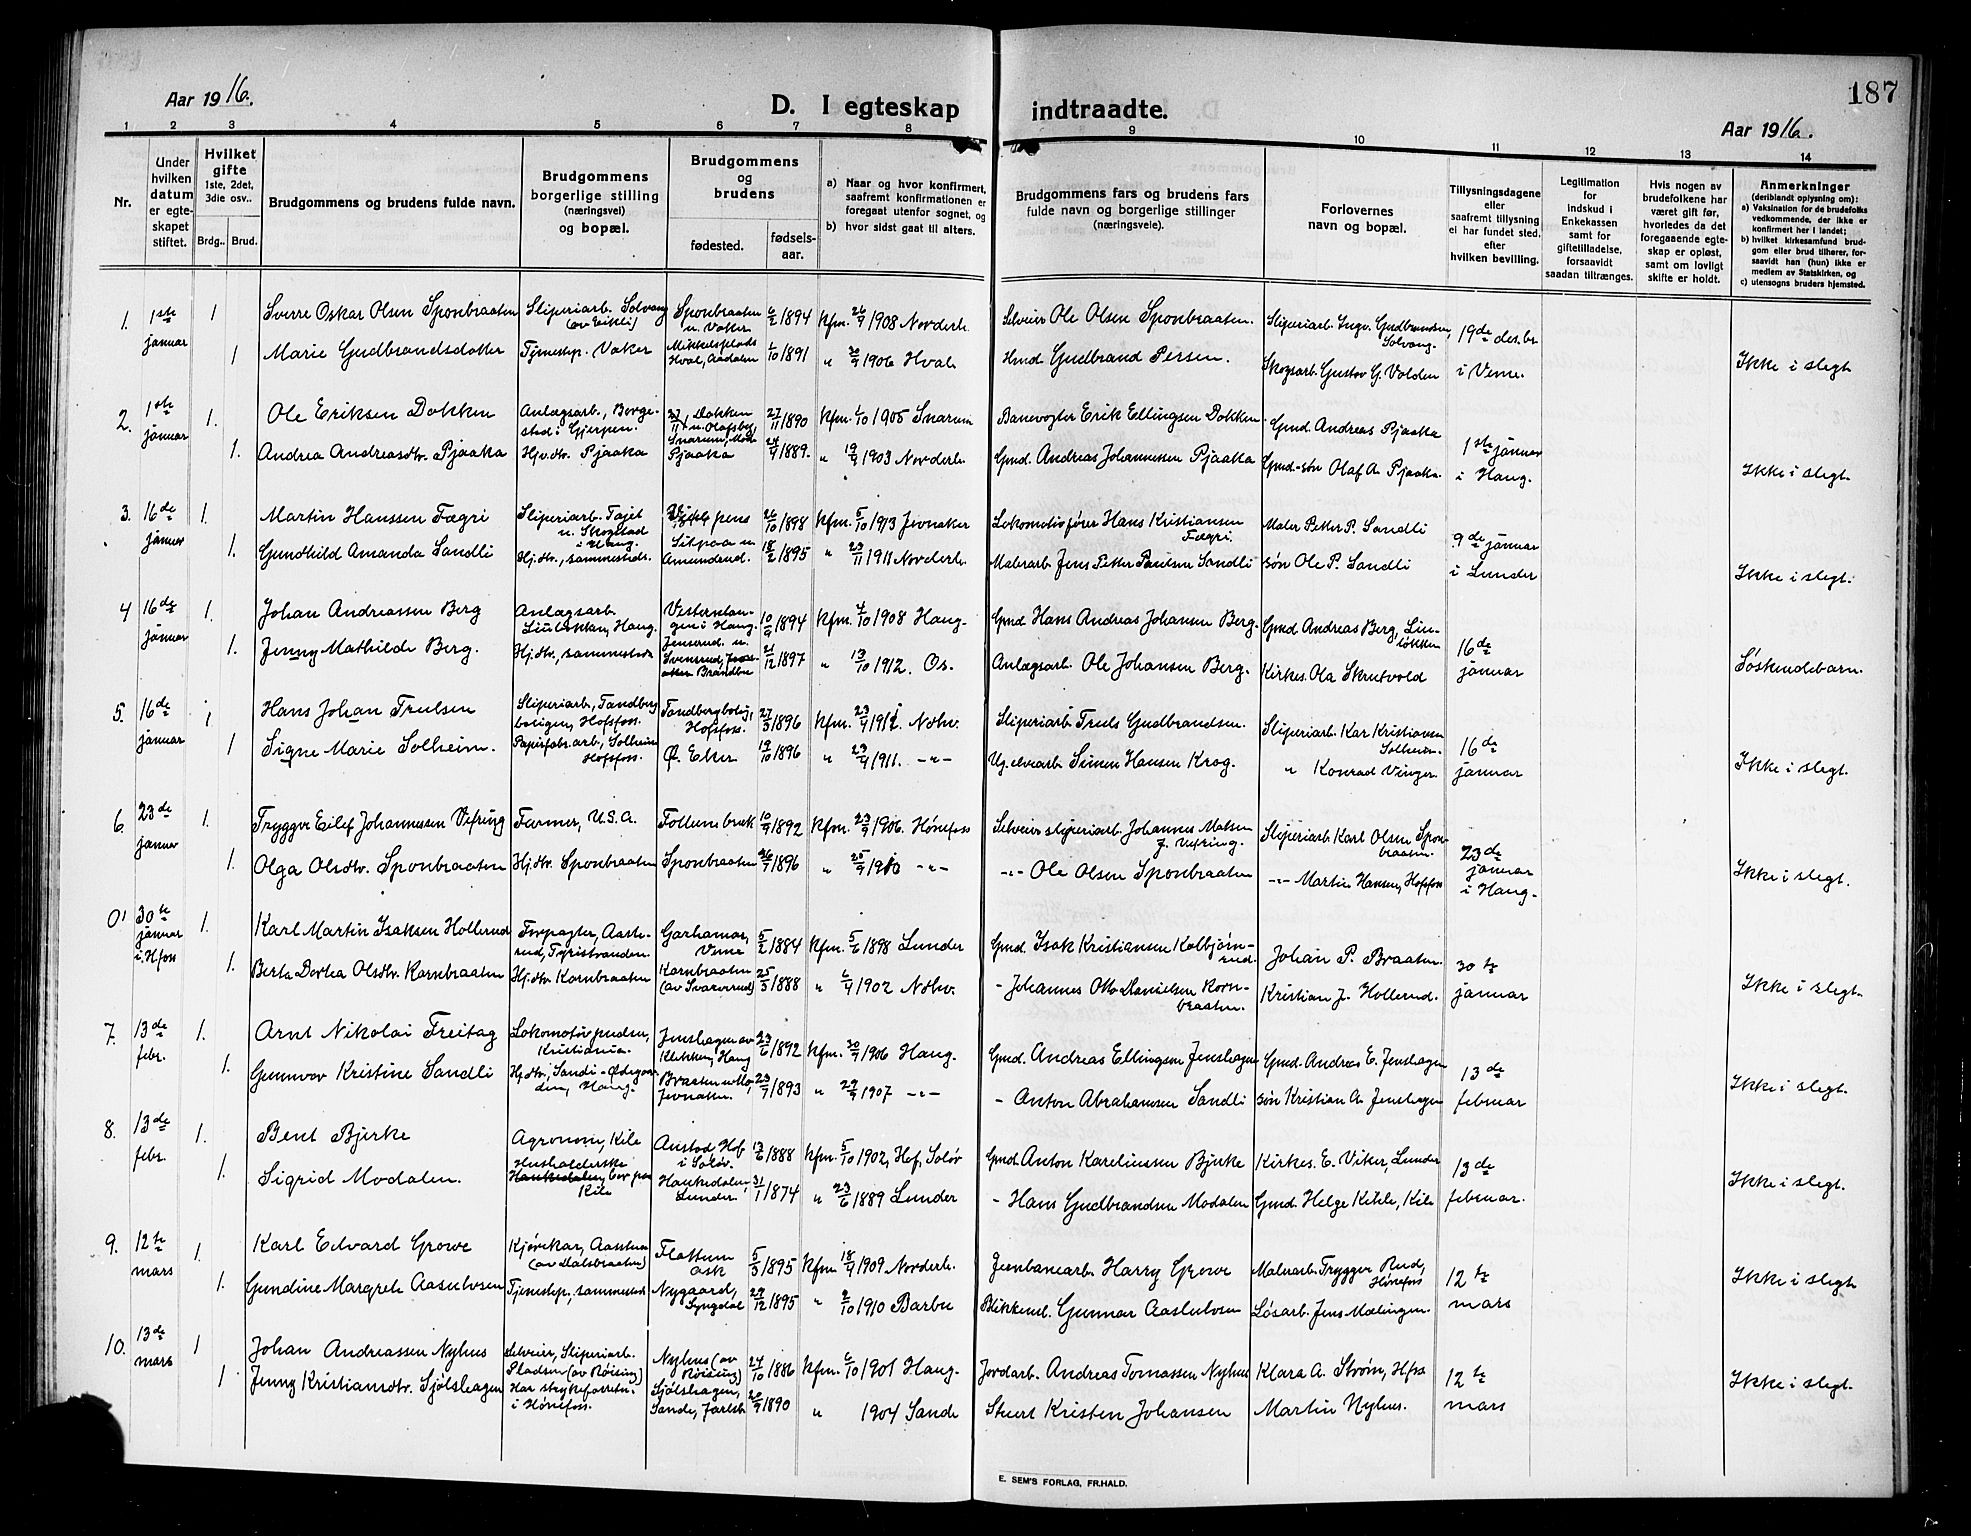 187
Aar 1916.
D. I egteskap indtraadte.
Aar 1916.
1 2 3 4 5 6 7 8 9 10 11 12 13 14
Nr.
Under hvilken datum er egteskapet stiftet.
Hvilket gifte 1ste, 2det, 3die osv..
Brdg.. Brud.
Brudgommens og brudens fulde navn.
Brudgommens borgerlige stilling (næringsvei) og bopæl.
Brudgommens og brudens
fødested. fødsels-aar.
a) Naar og hvor konfirmert, saafremt konfirmationen er foregaat utenfor sognet, og
b) hvor sidst gaat til alters.
Brudgommens fars og brudens fars fulde navn og borgerlige stillinger (næringsveie).
Forlovernes navn og bopæl.
Tillysningsdagene eller saafremt tillysning ei har fundet sted, efter hvilken bevilling.
Legitimation for indskud i Enkekassen samt for giftetilladelse, forsaavidt saadan tiltrænges.
Hvis nogen av brudefolkene har været gift før, hvorledes da det foregaaende egteskap er opløst, samt om lovligt skifte er holdt.
Anmerkninger (deriblandt oplysning om):
a) Vaksination for de brudefolks vedkommende, der ikke er konfirmert her i landet;
b) hvilket kirkesamfund brudgom eller brud tilhører, forsaavidt han (hun) ikke er medlem av Statskirken, og
c) utensogns bruders hjemsted.
1. 1ste januar 1 Sverre Oskar Olsen Sponbraaten Sliperiarb. Solvang (av Eikli) Sponbraaten u. Vaker 6/2 1894 Kfm. 26/9 1908 Norderh. Selveier Ole Olsen Sponbraaten. Sliperiarb. Ingv. Gudbrandsen, Solvang. 19de des.br
1 Marie Gudbrandsdatter Tjenestep. Vaker Mikkelsplads Hval, Aadalen 6/10 1891 " 30/9 1906 Hval. Hmd. Gudbrand Persen. Skogsarb. Gustav G. Volden i Veme. Ikke i slegt
2. 1ste januar 1. Ole Eriksen Dokken Anlægsarb., Borgestad i Gjerpen. Dokken u. Olafsby, Snarum, Mod. 27/11 1890 Kfm. 6/10 1905 Snarum Banevogter Erik Ellingsen Dokken Gmd. Andreas Pjaaka 1ste januar
1. Andrea Andreasdtr. Pjaaka Hj.dtr. Pjaaka Pjaaka 24/9 1889. " 19/9 1903 Norderh. Gmd. Andreas Johannessen Pjaaka Gmd-søn Olaf A. Pjaaka. i Haug. Ikke i slegt.
3. 16de januar 1. Martin Hanssen Fægri Sliperiarb. Tajet u. Skogstad i Haug. 26/10 1898 Kfm. 5/10 1913 Jevnaker Lokomotivfører Hans Kristiansen Fægri. Maler Peter P. Sandli 9de januar
1. Gundhild Amanda Sandli Hj.dtr., sammesteds. Sitpaa u. Amundrud. 18/2 1895 " 23/11 1911 Norderh. Malerarb. Jens Petter Paulsen Sandli søn Ole P. Sandli i Lunder Ikke i slegt.
4 16de januar 1. Johan Andreassen Berg Anlægsarb. Liuløkken, Haug. i Haug. 10/9 1894 Kfm. 4/10 1908 Haug. Gmd Hans Andreas Johansen Berg. Gmd. Andreas Berg, Liuløkken 16de
1. Jenny Mathilde Berg. Hj.dtr., sammesteds Jensrud u. Svensrud, Brandbu 21/12 1897 " 13/10 1912. Os. Anlægsarb. Ole Johansen Berg. Kirkes. Ola Skrutvold januar Søskendebarn.
5. 16de januar 1 Hans Johan Trulsen Sliperiarb., Tandberg boligen, Hofsfoss. Tandbergbolig, Hofsfoss. 27/3 1896 Kfm. 23/4 1911. Nohv. Sliperiarb. Truls Gudbrandsen. Sliperiarb. Kar Kristiansen Solheim. 16de
1 Signe Marie Solheim. Papirfabr.arb., Solheim Hofsfoss. Ø. Eker 19/10 1896 " 23/4 1911. -"- Simen Hansen Krog. " Konrad Vinger. januar Ikke i slegt.
6. 23de januar 1. Trygve Eilef Johannessen Vefring Farmer, U.S.A. Follum bruk 10/9 1892 Kfm. 23/9 1906. Hønefoss Selveier sliperiarb. Johannes Matsen J. Vefring. Sliperiarb. Karl Olsen Sponbraaten. 23de
1. Olga Olsdtr. Sponbraaten Hj.dtr. Sponbraaten Sponbraaten 26/7 1896 " 25/9 1910 -"- -"- Ole Olsen Sponbraaten -"- Martin Hansen, Hofsfoss januar i Haug. Ikke i slegt.
0 30te januar i Hfoss 1. Karl Martin Isaksen Hollerud Forpagter, Aasterud, Tyristranden. Garhamar, Veme 5/2 1884 Kfm. 5/6 1898 Lunder Gmd. Isak Kristiansen Kolbjørnrud. Johan P. Braaten. 30te
1. Berta Dortea Olsdtr. Kornbraaten Hj.dtr. Kornbraaten Kornbraaten (av Svarverud) 25/3 1888 " 6/4 1902 Nohv. - Johannes Otto Danielsen Kornbraaten. Kristian J. Hollerud. januar Ikke i slegt.
7. 13de febr. 1. Arnt Nikolai Freitag Lokomotivpudser, Kristiania. Jenshagen av Klekken, Haug 23/6 1892 Kfm. 30/9 1906 Haug. Gmd. Andreas Ellingsen Jenshagen Gmd. Andreas E. Jenshagen 13de
1. Gunnvor Kristine Sandli Hj.dtr., Sandli-Ødegaarden, Haug. Jevnaker. 23/7 1893 " 29/9 1907 -"- - Anton Abrahamsen Sandli søn Kristian A. Jenshagen februar Ikke i slegt.
8. 13de febr. 1. Bent Bjerke Agronom, Kile Austad, Hof i Solør. 13/6 1888 Kfm. 5/10 1902, Hof, Solør Gmd. Anton Karelinssen Bjerke Kirkes. E. Viker, Lunder 13de
1. Sigrid Modalen. Husholderske Haukedalen, bor paa Kile Haukedalen, Lunder. 31/1 1874 " 23/6 1889 Lunder - Hans Gudbrandsen Modalen Gmd. Helge Kihle, Kile februar. Ikke i slegt.
9. 12te mars 1. Karl Edvard Growe Kjørekar, Aasterud (av Dalsbraaten) Flattum Ask 5/3 1895 Kfm. 18/4 1909 Norderh. Jernbanearb. Harry Growe Malerarb. Trygve Rud, Hønefoss 12te
1. Gundine Margrete Aaslulvsen Tjenestep., sammesteds Nygaard, Lyngdal 29/12 1895 " 2/10 1910 Barbu Blikkensl. Gunnar Aaslulvsen Løsarb. Jens Mælingen. mars Ikke i slegt
10. 13de mars 1 Johan Andreassen Nyhus Selveier, Sliperiarb. Pladsen (av Røising) Nyhus (av Røising) 24/10 1886 Kfm. 6/10 1901 Haug. Jordarb. Andreas Tomassen Nyhus Klara A. Strøm, Hfoss 12te
1 Jenny Kristiansdtr. Sjølshagen Har strykeforretn. i Hønefoss. Sjølshagen, Sande, Jarlsb. 20/9 1890 " 1904 Sande Stuert Kristen Johansen Martin Nyhus. mars Ikke i slegt.
E. SEM'S FORLAG, FR.HALD.